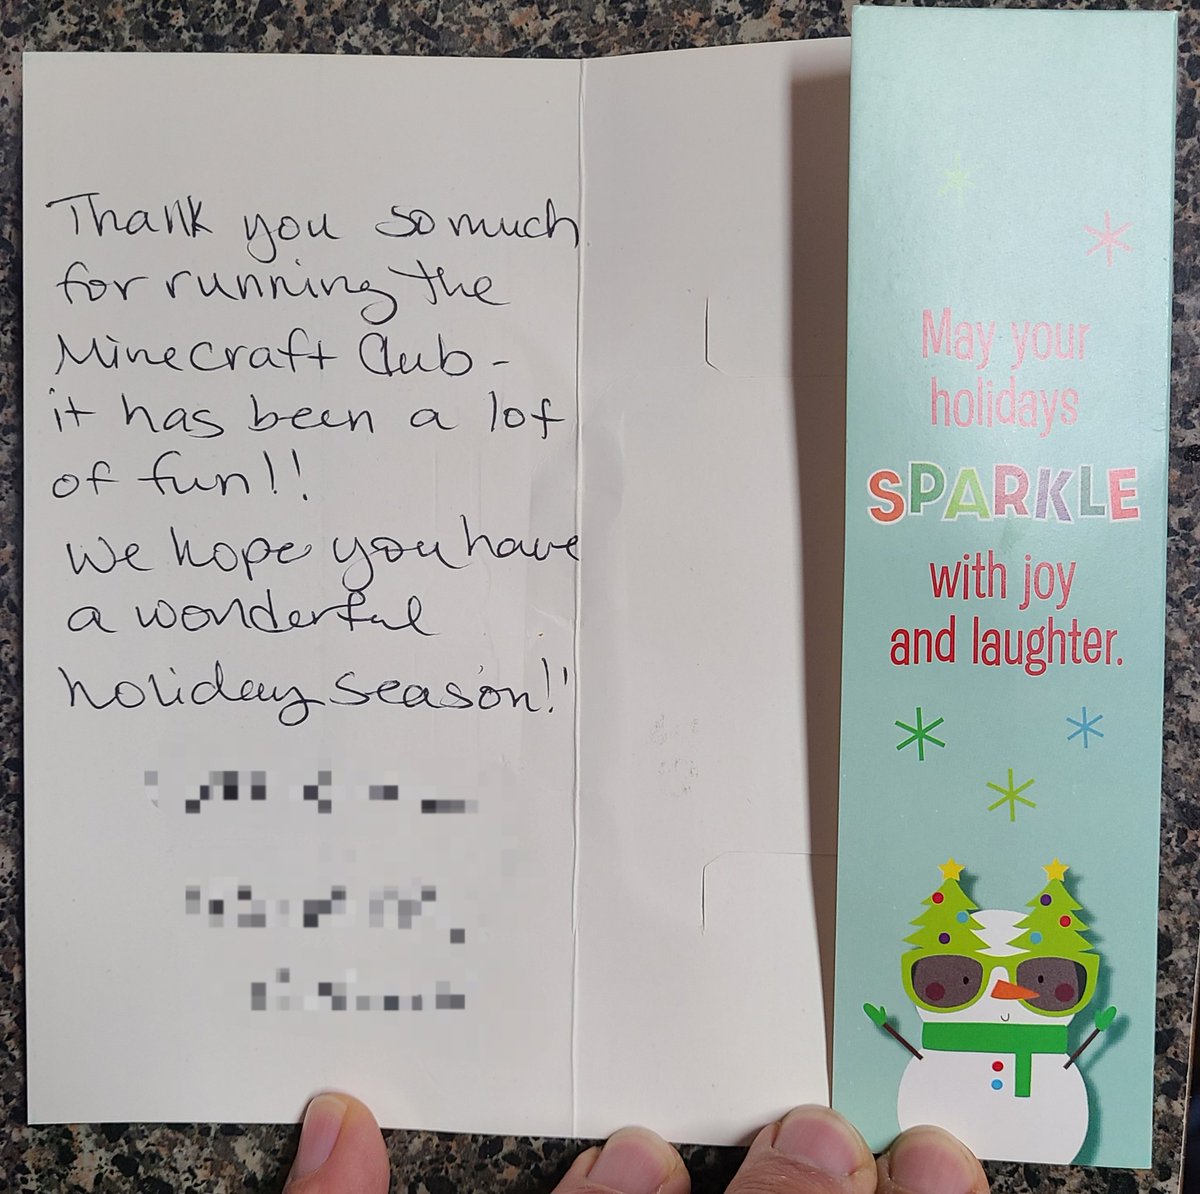 Thank you so much
for running the
Minecraft Club -
it has been a lot
of fun!!
We hope you have
a wonderful
holiday season!!
May your
holidays
SPARKLE
with joy
and laughter.